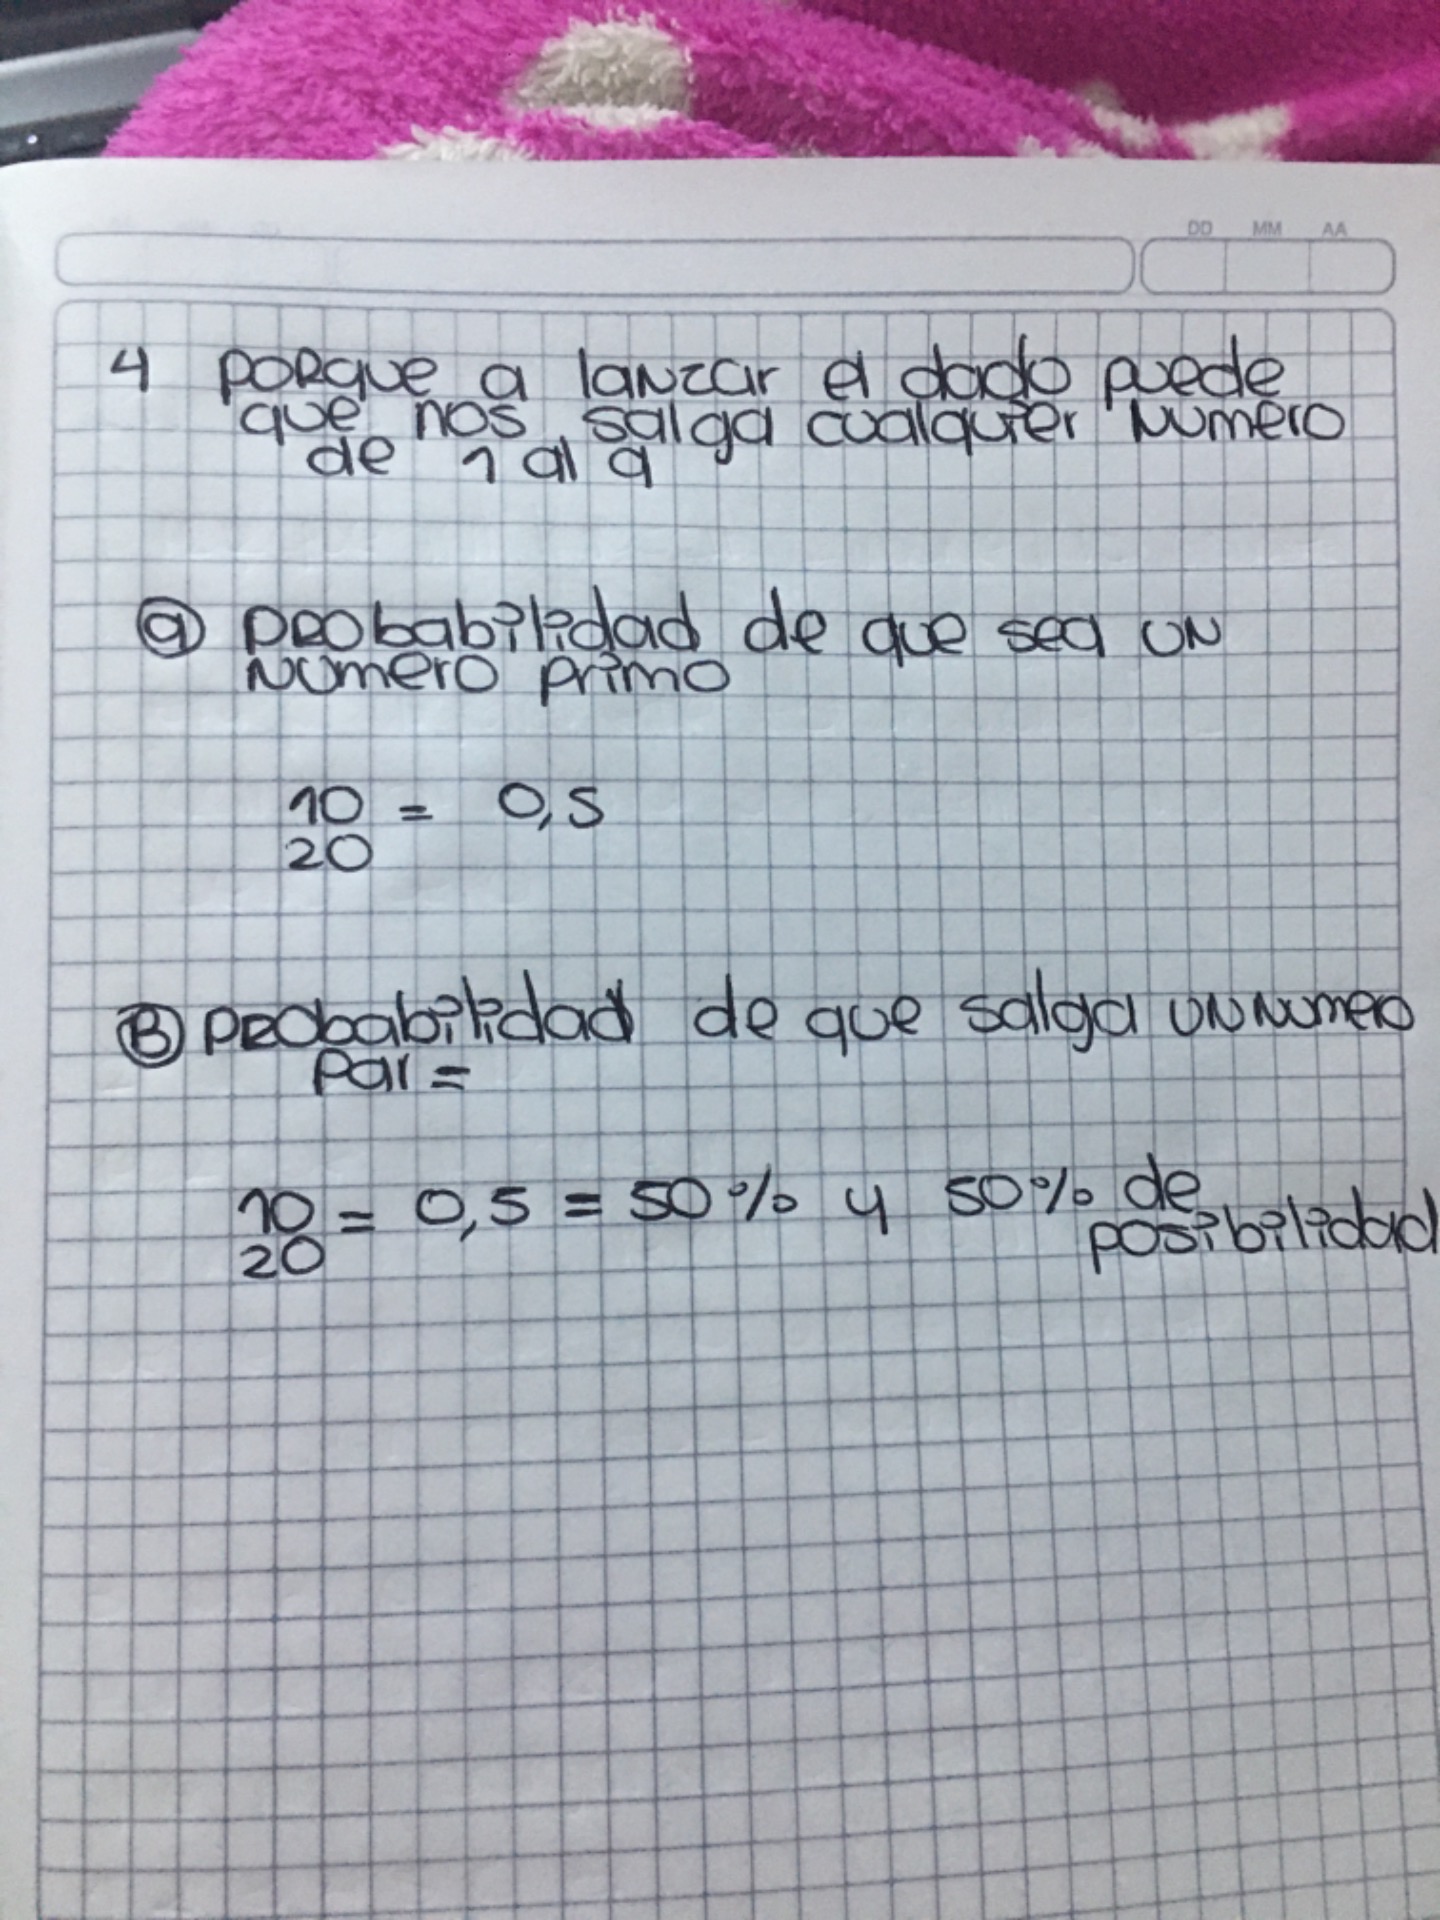 DD MM AA
4 porque a lanzar el dado puede
que nos salga cualquier numero
de 1 al 9
a probabilidad de que sea un
numero primo
10 = 0,5
20
B probabilidad de que salga un numero
par =
10 = 0,5 = 50% y 50% de
20 posibilidad